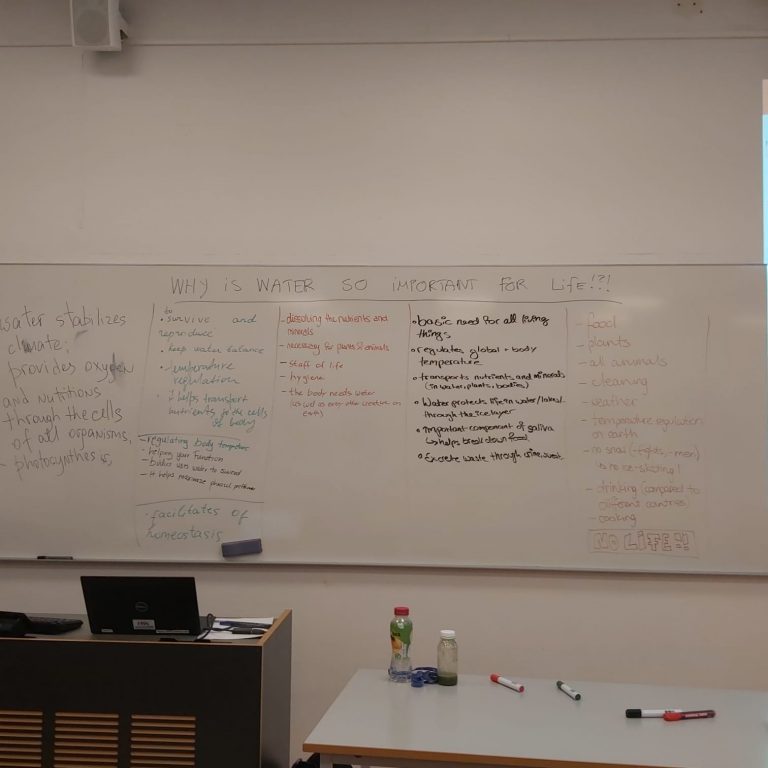 WHY IS WATER SO IMPORTANT FOR LIFE!?!
water stabilizes
climate;
provides oxygen
and nutritions
through the cells
of all organisms,
- photosynthes is,
to
• survive and
reproduce
• keep water balance
• temperature
regulation
• it helps transport
nutrients to the cells
of body
- regulating body
- helping your function
- uses water to
- it helps maximize physical
• facilitates of
homeostasis
- dissolving the nutrients and
minerals
- necessary for plants & animals
- staff of life
- hygiene
- the body needs water
(as well as every other creature on
earth)
• basic need for all living
things
• regulates global + body
temperature
• transports nutrients and minerals
(in water, plants, bodies)
• Water protects life in water/lakes
through the ice layer
• important component of saliva
↳ helps break down food
• Excrete waste through urine, sweat
- food
- plants
- all animals
- cleaning
- weather
- temperature regulation
on earth
- no snow (-fights, -men)
↳ no ice-skating!
- drinking (compared to
different countries)
- cooking
NO LIFE!!
DELL